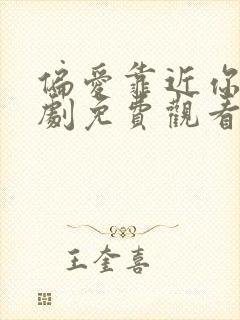 偏愛靠近你
劇免費觀看
王奎喜